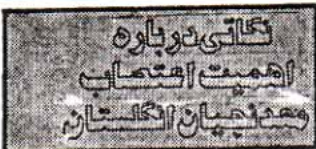 نکاتی درباره
اهمیت اعتصاب
معدنچیان انگلستان